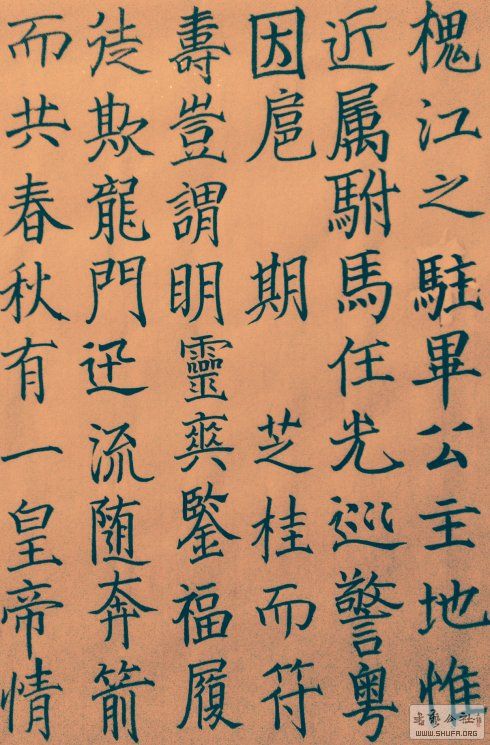 槐江之駐畢公主地惟
近属駙馬任光巡警粤
因扈 期芝桂而符
壽豈謂明靈爽鑒福履
徒欺龍門迅流随奔箭
而共春秋有一皇帝情
书艺公社
WWW.SHUFA.ORG